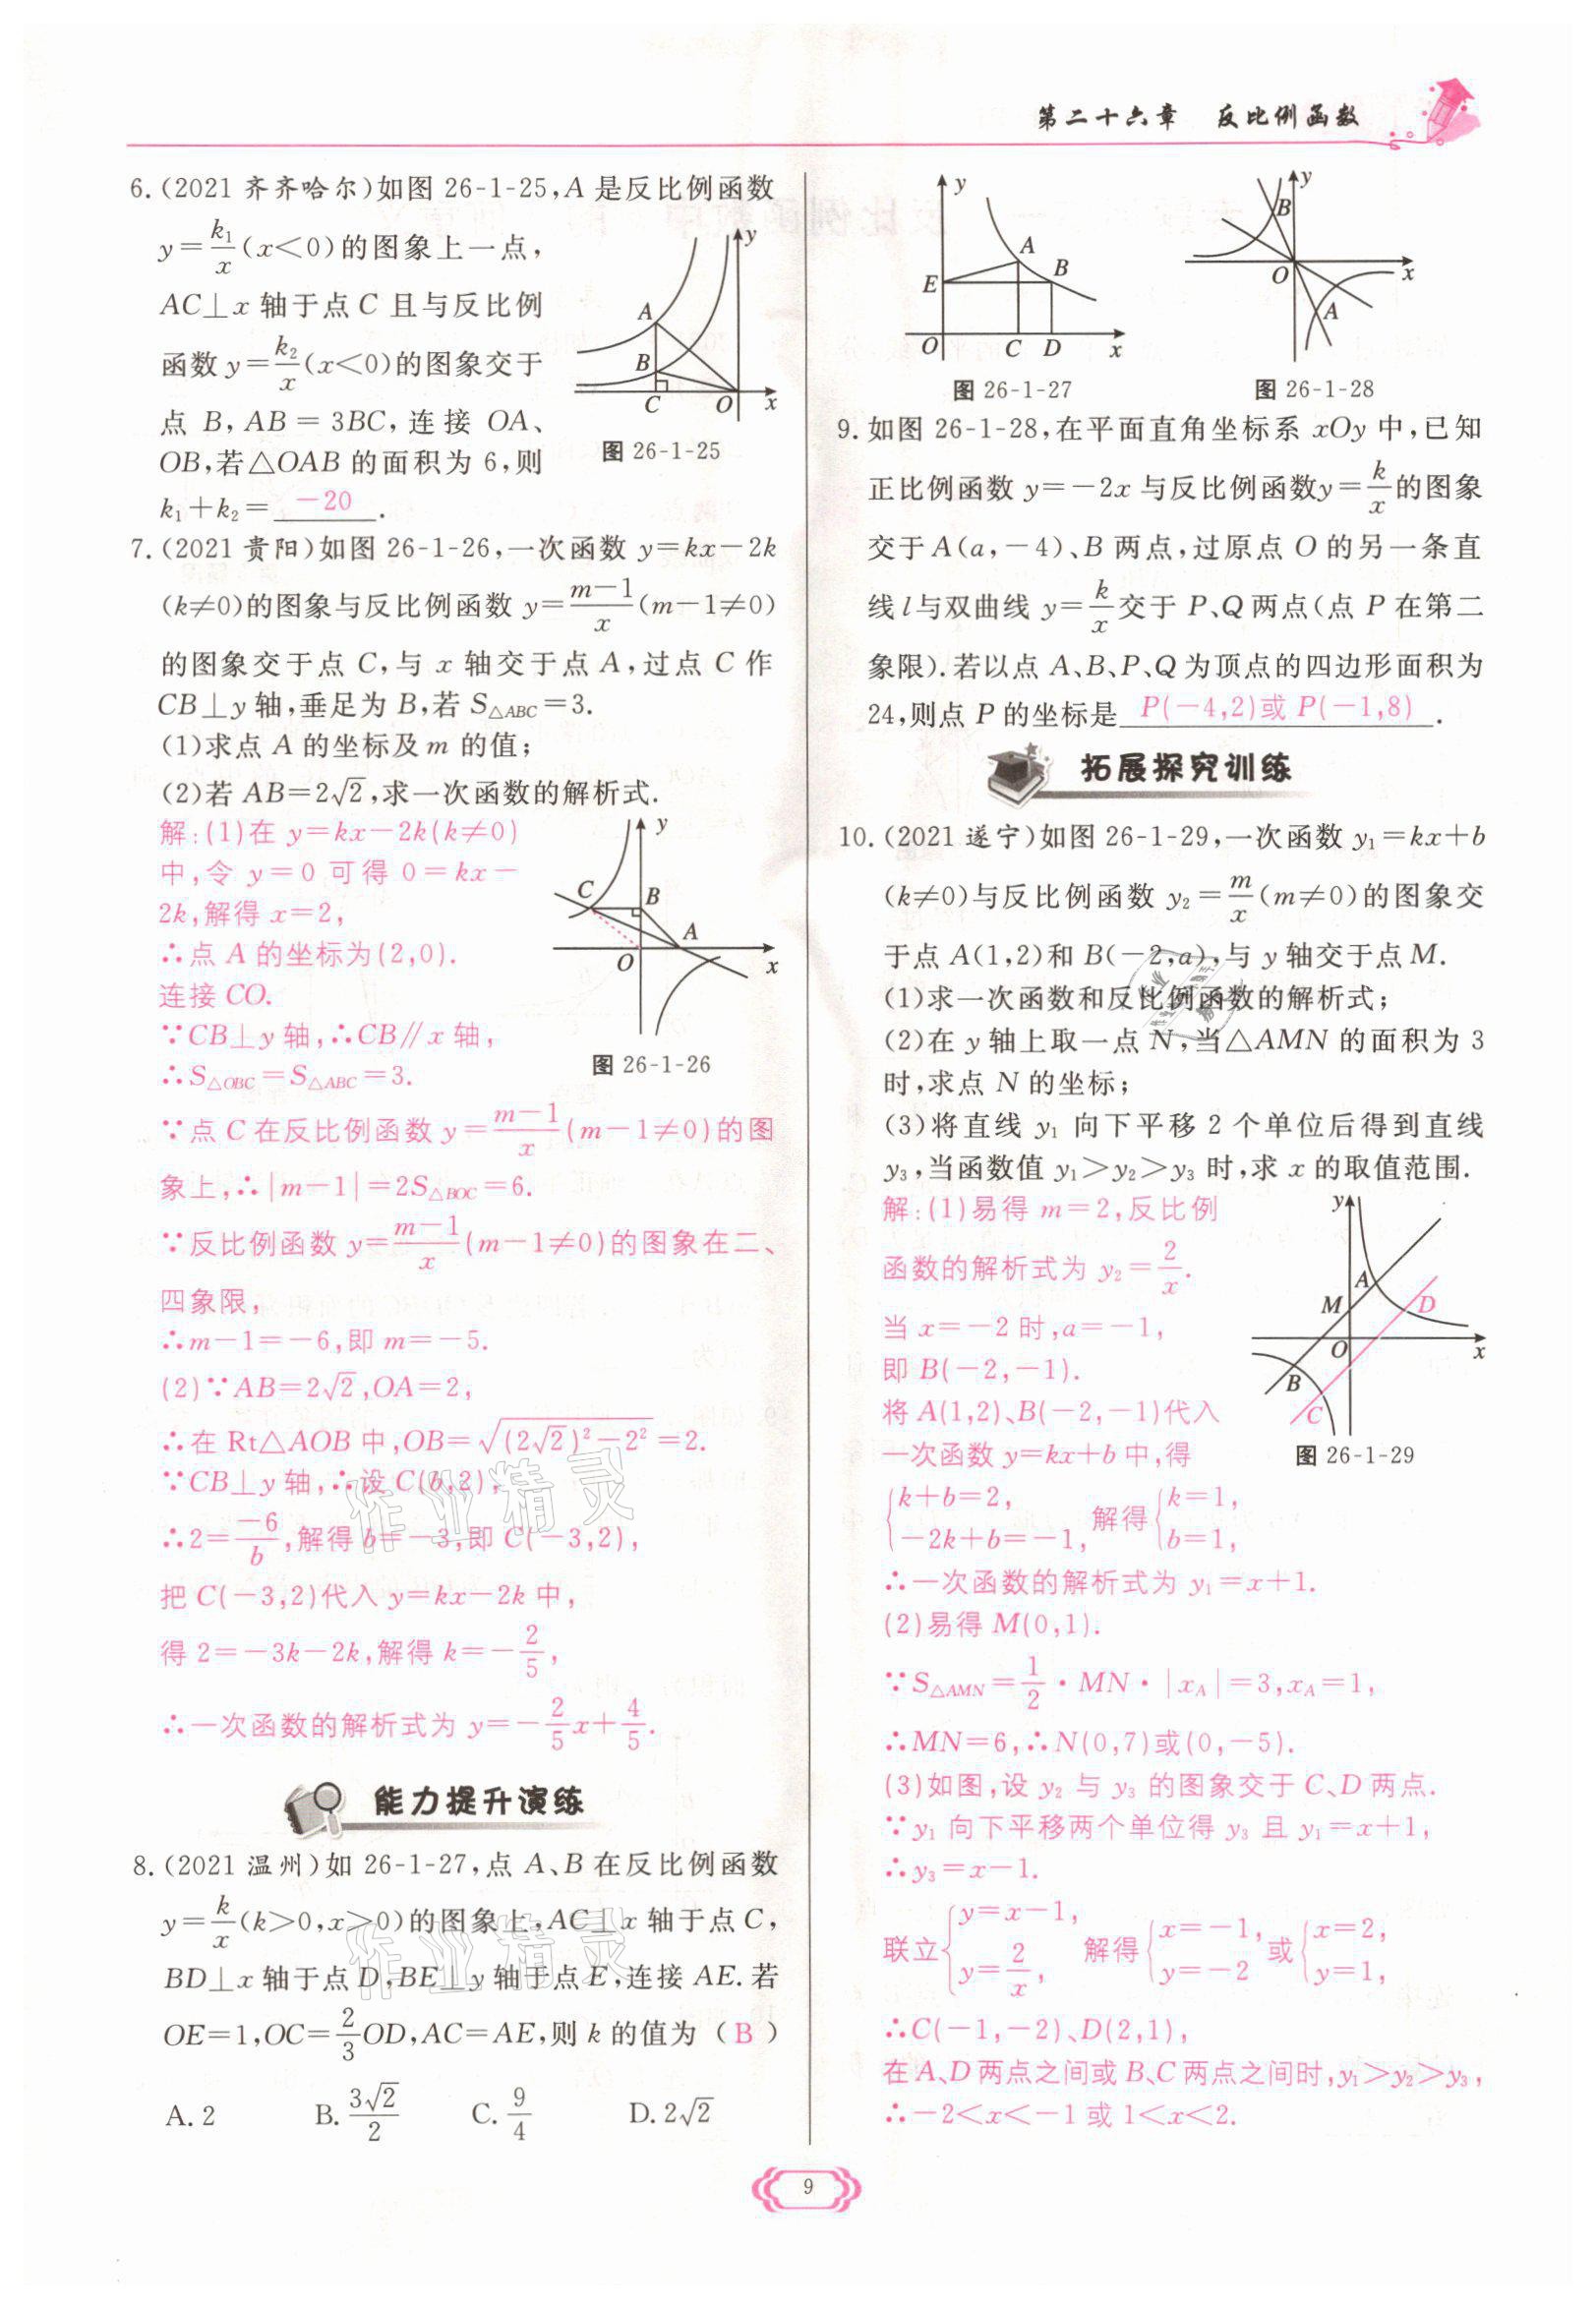 第二十六章 反比例函数
6.(2021 齐齐哈尔)如图 26-1-25,A 是反比例函数
y=k₁/x(x<0)的图象上一点,
AC⊥x 轴于点 C 且与反比例
函数 y=k₂/x(x<0)的图象交于
点 B,AB=3BC,连接 OA、
OB,若△OAB 的面积为 6,则
k₁+k₂= -20 .
y
A
B
C
O
x
图 26-1-25
7.(2021 贵阳)如图 26-1-26,一次函数 y=kx-2k
(k≠0)的图象与反比例函数 y=(m-1)/x(m-1≠0)
的图象交于点 C,与 x 轴交于点 A,过点 C 作
CB⊥y 轴,垂足为 B,若 S△ABC=3.
(1)求点 A 的坐标及 m 的值;
(2)若 AB=2√2,求一次函数的解析式.
解:(1)在 y=kx-2k(k≠0)
中,令 y=0 可得 0=kx-
2k,解得 x=2,
∴点 A 的坐标为(2,0).
连接 CO.
∵CB⊥y 轴,∴CB∥x 轴,
∴S△OBC=S△ABC=3.
y
C
B
A
O
x
图 26-1-26
∵点 C 在反比例函数 y=(m-1)/x(m-1≠0)的图
象上,∴|m-1|=2S△BOC=6.
∵反比例函数 y=(m-1)/x(m-1≠0)的图象在二、
四象限,
∴m-1=-6,即 m=-5.
(2)∵AB=2√2,OA=2,
∴在 Rt△AOB 中,OB=√((2√2)²-2²)=2.
∵CB⊥y 轴,∴设 C(b,2),
∴2=-6/b,解得 b=-3,即 C(-3,2),
把 C(-3,2)代入 y=kx-2k 中,
得 2=-3k-2k,解得 k=-2/5,
∴一次函数的解析式为 y=-2/5x+4/5.
能力提升演练
8.(2021 温州)如 26-1-27,点 A、B 在反比例函数
y=k/x(k>0,x>0)的图象上,AC⊥x 轴于点 C,
BD⊥x 轴于点 D,BE⊥y 轴于点 E,连接 AE.若
OE=1,OC=2/3OD,AC=AE,则 k 的值为(B)
A.2 B.3√2/2 C.9/4 D.2√2
y
A
B
E
O
C
D
x
图 26-1-27
y
B
O
x
A
图 26-1-28
9.如图 26-1-28,在平面直角坐标系 xOy 中,已知
正比例函数 y=-2x 与反比例函数y=k/x的图象
交于A(a,-4)、B 两点,过原点 O 的另一条直
线 l 与双曲线 y=k/x交于 P、Q 两点(点 P 在第二
象限).若以点 A、B、P、Q 为顶点的四边形面积为
24,则点 P 的坐标是 P(-4,2)或 P(-1,8) .
拓展探究训练
10.(2021 遂宁)如图 26-1-29,一次函数 y₁=kx+b
(k≠0)与反比例函数 y₂=m/x(m≠0)的图象交
于点 A(1,2)和 B(-2,a),与 y 轴交于点 M.
(1)求一次函数和反比例函数的解析式;
(2)在 y 轴上取一点 N,当△AMN 的面积为 3
时,求点 N 的坐标;
(3)将直线 y₁ 向下平移 2 个单位后得到直线
y₃,当函数值 y₁>y₂>y₃ 时,求 x 的取值范围.
解:(1)易得 m=2,反比例
函数的解析式为 y₂=2/x.
当 x=-2 时,a=-1,
即 B(-2,-1).
将 A(1,2)、B(-2,-1)代入
一次函数 y=kx+b 中,得
{k+b=2, -2k+b=-1, 解得{k=1, b=1,
y
A
M
D
O
x
B
C
图 26-1-29
∴一次函数的解析式为 y₁=x+1.
(2)易得 M(0,1).
∵S△AMN=1/2·MN·|xA|=3,xA=1,
∴MN=6,∴N(0,7)或(0,-5).
(3)如图,设 y₂ 与 y₃ 的图象交于 C、D 两点.
∵y₁ 向下平移两个单位得 y₃ 且 y₁=x+1,
∴y₃=x-1.
联立{y=x-1, y=2/x, 解得{x=-1, y=-2 或{x=2, y=1,
∴C(-1,-2)、D(2,1),
在 A、D 两点之间或 B、C 两点之间时,y₁>y₂>y₃,
∴-2<x<-1 或 1<x<2.
作业精灵
作业精灵
9